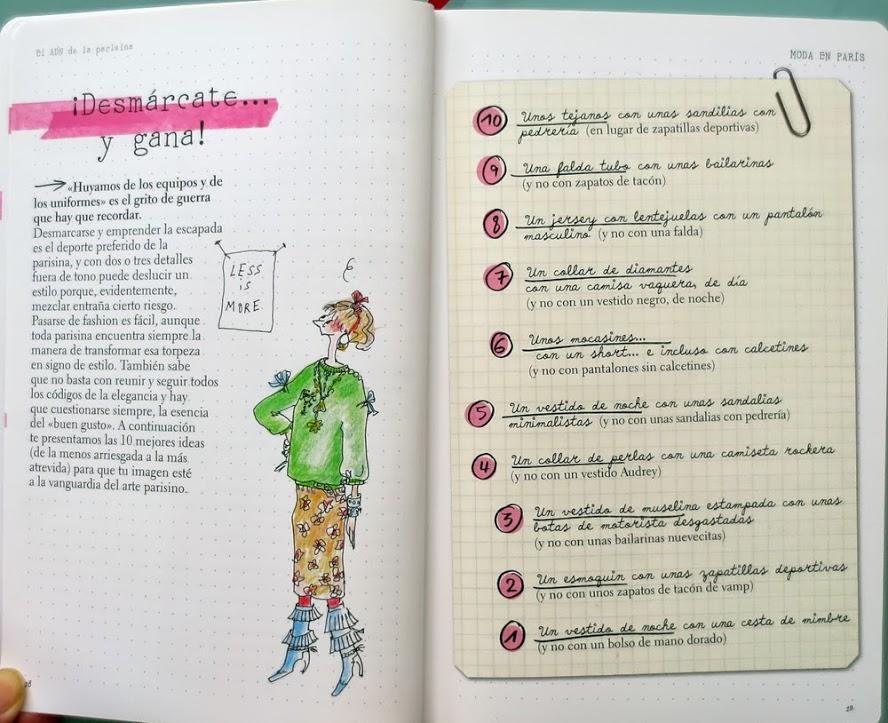 El ADN de la parisina
¡Desmárcate...
y gana!
«Huyamos de los equipos y de
los uniformes» es el grito de guerra
que hay que recordar.
Desmarcarse y emprender la escapada
es el deporte preferido de la
parisina, y con dos o tres detalles
fuera de tono puede deslucir un
estilo porque, evidentemente,
mezclar entraña cierto riesgo.
Pasarse de fashion es fácil, aunque
toda parisina encuentra siempre la
manera de transformar esa torpeza
en signo de estilo. También sabe
que no basta con reunir y seguir todos
los códigos de la elegancia y hay
que cuestionarse siempre, la esencia
del «buen gusto». A continuación
te presentamos las 10 mejores ideas
(de la menos arriesgada a la más
atrevida) para que tu imagen esté
a la vanguardia del arte parisino.
LESS
is
MORE.
MODA EN PARÍS
10 Unos tejanos con unas sandilias con
pedrería (en lugar de zapatillas deportivas)
9 Una falda tubo con unas bailarinas
(y no con zapatos de tacón)
8 Un jersey con lentejuelas con un pantalón
masculino (y no con una falda)
7 Un collar de diamantes
con una camisa vaquera, de día
(y no con un vestido negro, de noche)
6 Unos mocasines...
con un short... e incluso con calcetines
(y no con pantalones sin calcetines)
5 Un vestido de noche con unas sandalias
minimalistas (y no con unas sandalias con pedrería)
4 Un collar de perlas con una camiseta rockera
(y no con un vestido Audrey)
3 Un vestido de muselina estampada con unas
botas de motorista desgastadas
(y no con unas bailarinas nuevecitas)
2 Un esmoquin con unas zapatillas deportivas
(y no con unos zapatos de tacón de vamp)
1 Un vestido de noche con una cesta de mimbre
(y no con un bolso de mano dorado)